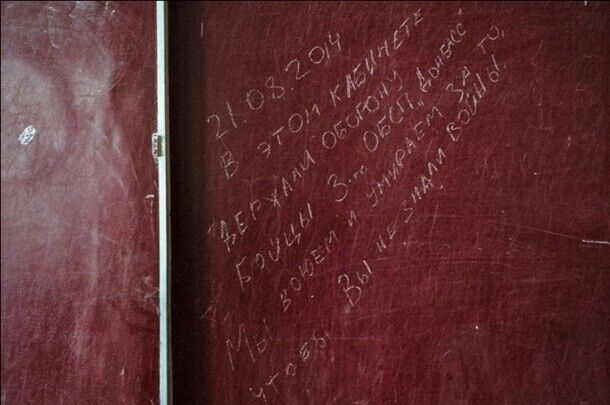 21.08.2014
В ЭТОМ КАБИНЕТЕ
ДЕРЖАЛИ ОБОРОНУ
БОЙЦЫ 3-го ОБСП "ДОНБАСС"
МЫ ВОЮЕМ И УМИРАЕМ ЗА ТО,
ЧТОБЫ ВЫ НЕ ЗНАЛИ ВОЙНЫ.